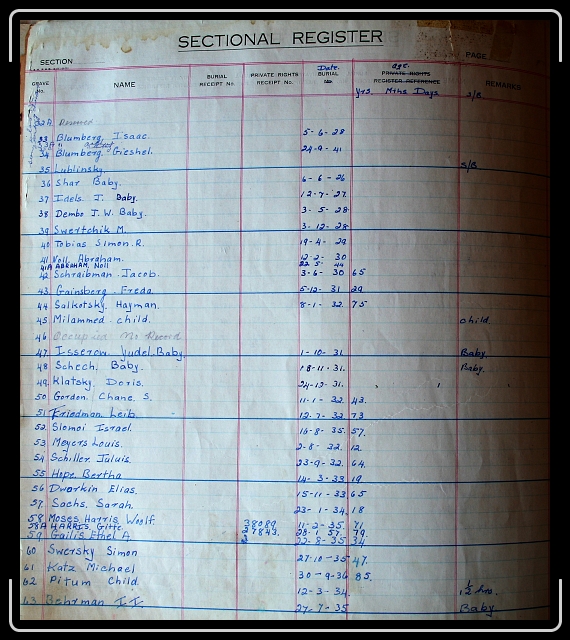 SECTIONAL REGISTER
SECTION PAGE
GRAVE No. NAME BURIAL RECEIPT No. PRIVATE RIGHTS RECEIPT No. Date BURIAL No. age. PRIVATE RIGHTS REGISTER REFERENCE REMARKS
yrs. Mths Days S/B
32A Reserved
33 Blumberg, Isaac. 5-6-28
34 Blumberg, Gieshel. 24-9-41
35 Lublinsky. S/B
36 Shar Baby. 6-6-26
37 Idels. J. Baby. 12-7-27.
38 Dembo J.W. Baby. 3-5-28
39 Swertchik M. 3-12-28
40 Tobias Simon. R. 19-4-29
41 Noll, Abraham. 12-2-30
41A ABRAHAM, Noll
42 Schraibman. Jacob. 3-6-30 65
43 Gainsberg. Freda. 5-12-31 29
44 Salkotsky. Hayman. 8-1-32. 75
45 Milammed child. child
46 Occupied No Record
47 Isserow, Yudel. Baby. 1-10-31. Baby.
48 Schech, Baby. 18-11-31. Baby.
49 Klatsky, Doris. 24-12-31.
50 Gordon. Chane. S. 11-1-32 43.
51 Friedman Leib. 12-7-32 73
52 Slomoi Israel. 16-8-35. 57.
53 Meyers Louis. 2-8-32. 12.
54 Schiller Juluis. 23-9-32. 64.
55 Hope. Bertha 14-3-33 19
56 Dworkin Elias. 15-11-33 65
57 Sachs. Sarah. 23-1-34. 18
58 Moses Harris Woolf. 38089 11-2-35. 71
58A HARRIS, Gitte. 27843. 28-1-57. 79
59 Gailis Ethel A 22-8-35 34
60 Swersky Simon 27-10-35 47.
61 Katz Michael 30-9-36 85.
62 Pitum Child. 12-3-34. ½ hrs.
63 Behrman I.I. 27-7-35 Baby